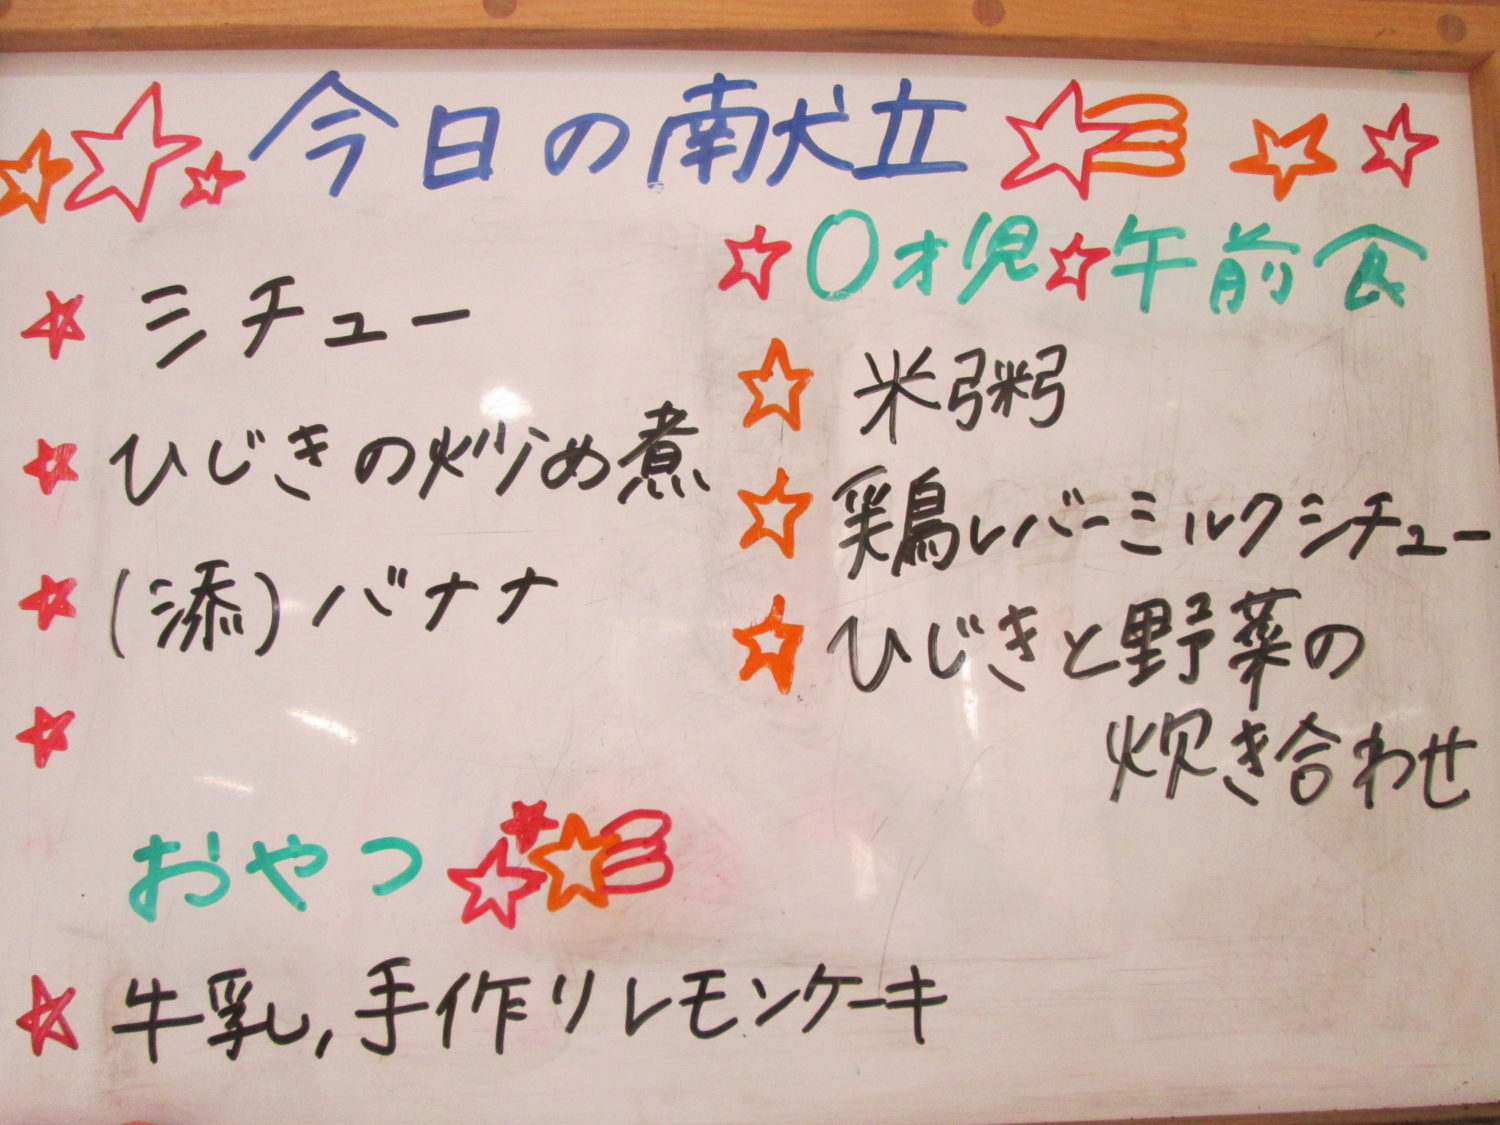 今日の献立
シチュー
ひじきの炒め煮
(添)バナナ
おやつ
牛乳,手作りレモンケーキ
0才児 午前食
米粥
鶏レバーミルクシチュー
ひじきと野菜の
炊き合わせ